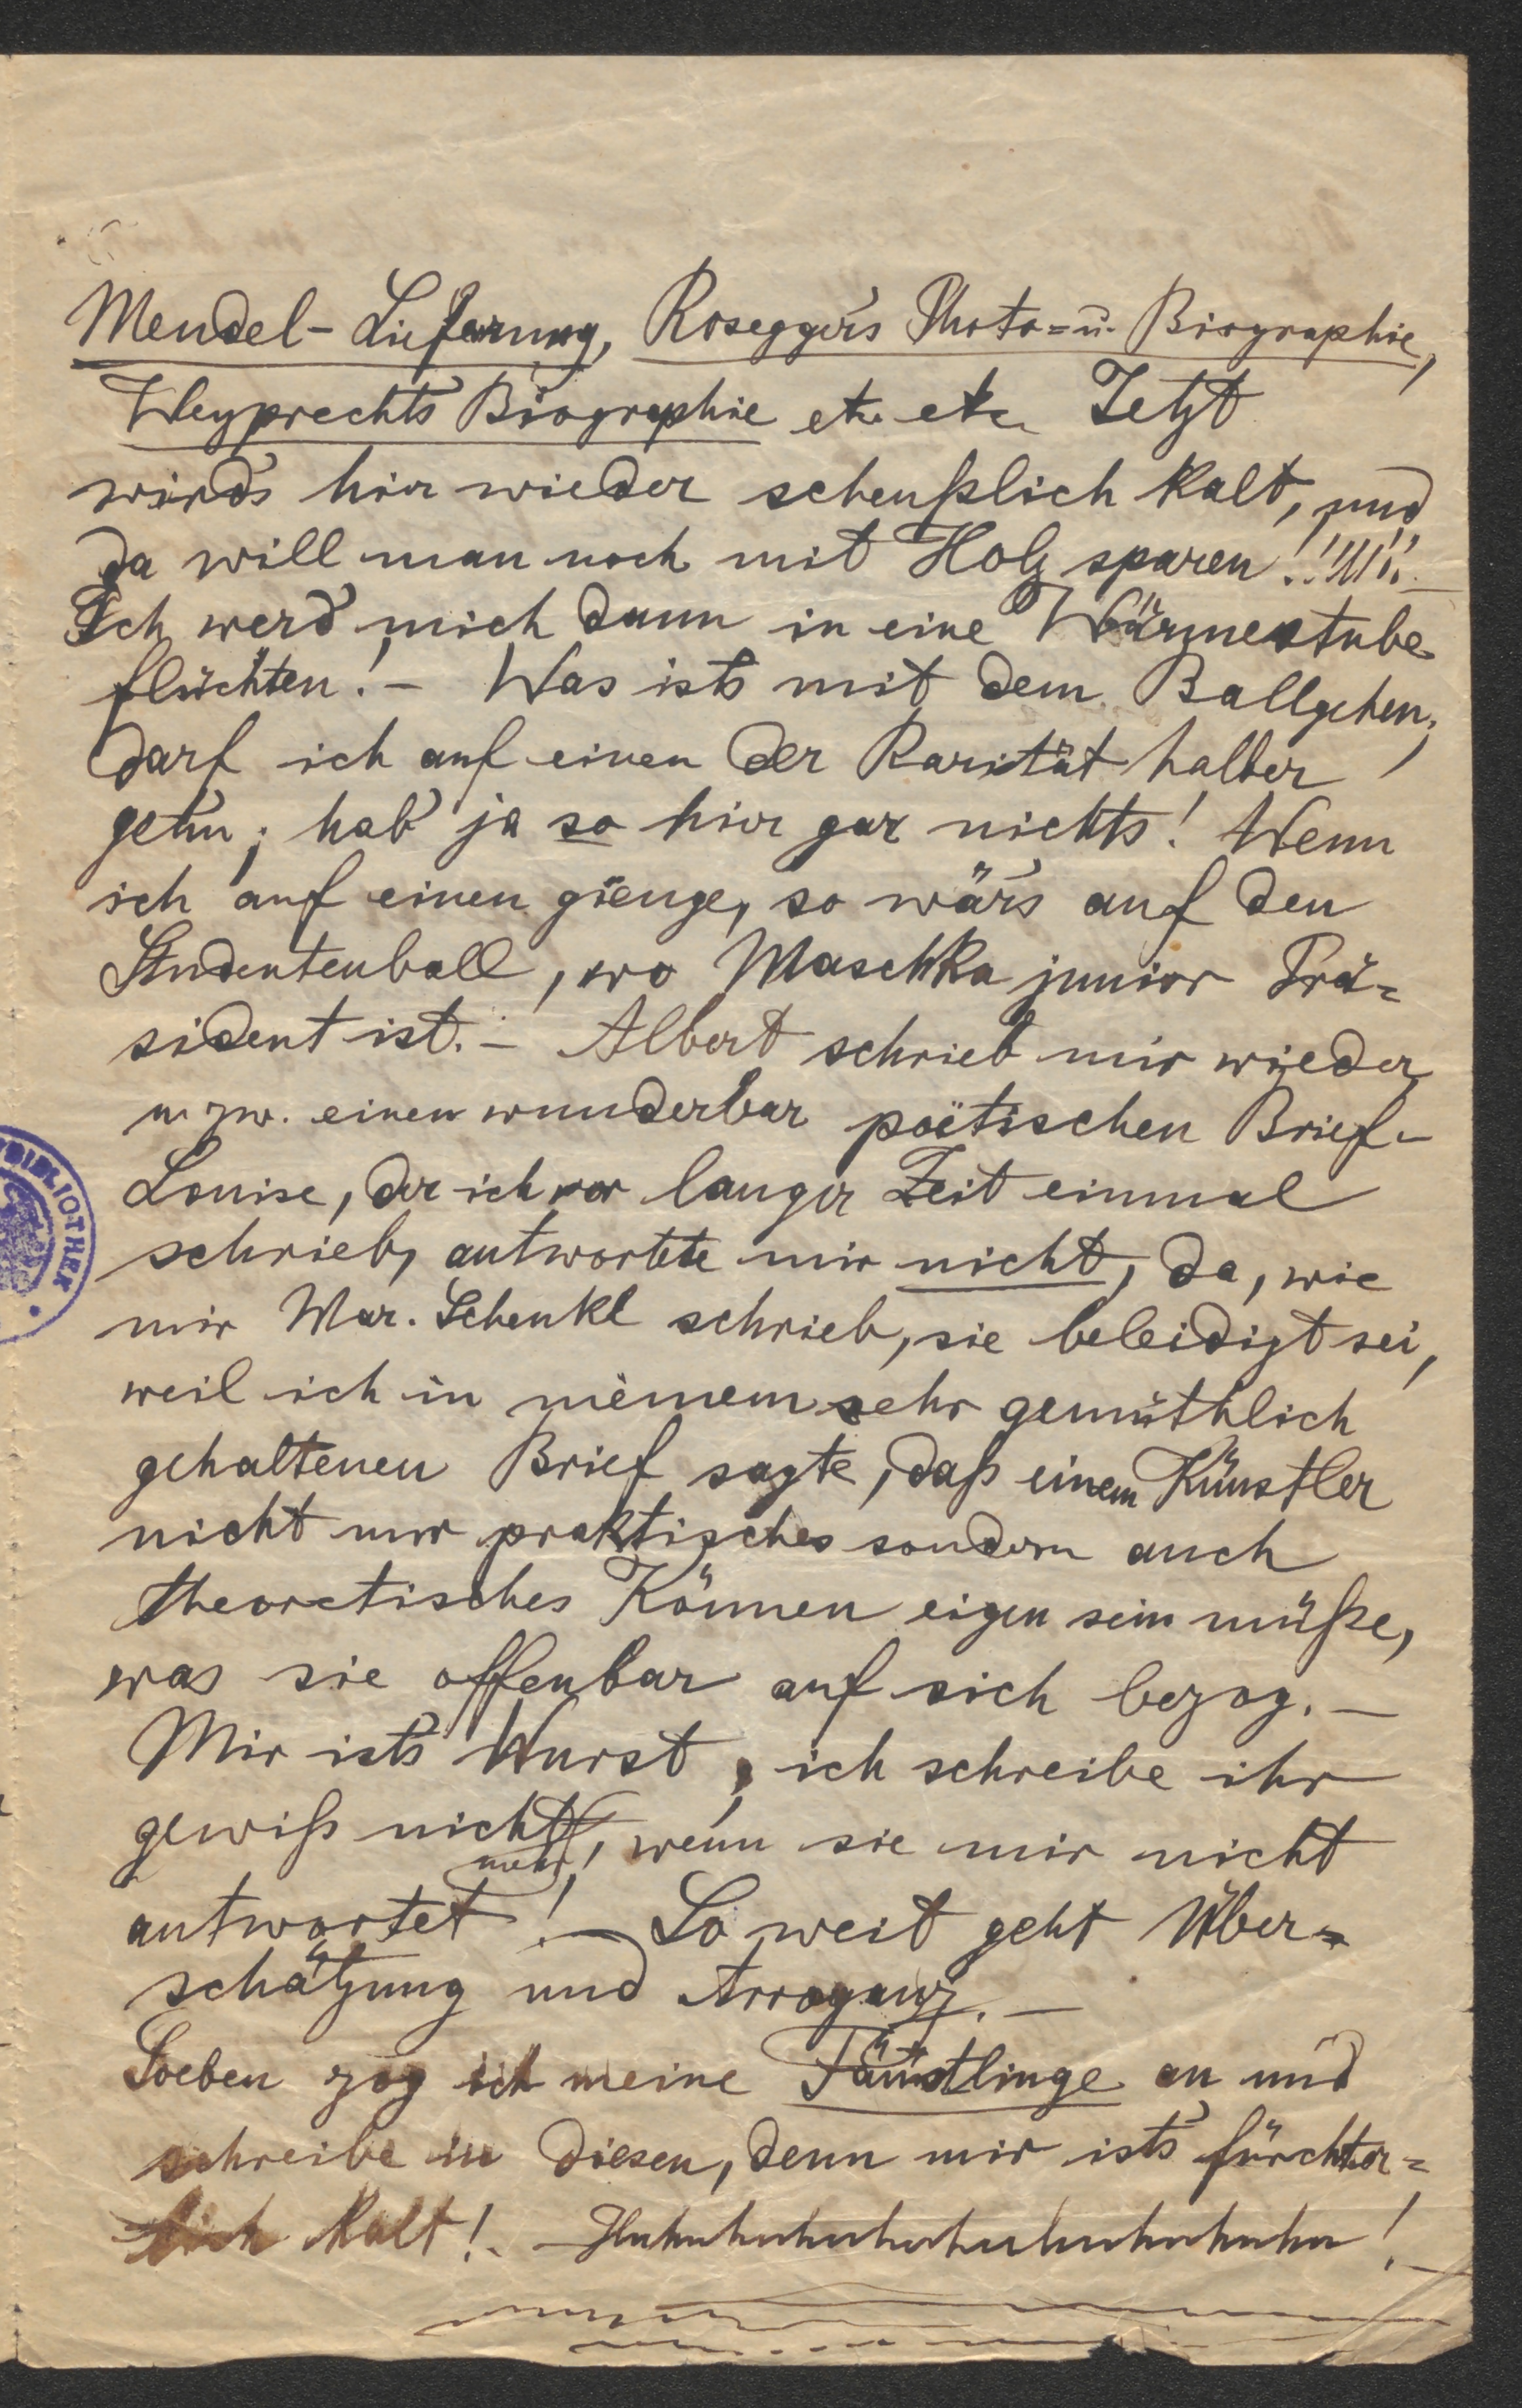 Mendel-Lieferung, Rosegger's Photo- u. Biographie,
Weyprechts Biographie etc. etc. Jetzt
wird's hier wieder scheußlich kalt, und
da will man noch mit Holz sparen!!!!!!!
Ich werd' mich dann in eine Wärmestube
flüchten! – Was ist's mit dem Ballgehen;
darf ich auf einen der Rarität halber
geh'n; hab' ja so hier gar nichts! Wenn
ich auf einen gienge, so wär's auf den
Studentenball, wo Maschka junior Prä=
sident ist. – Albert schrieb mir wieder
u. zw. einen wunderbar poëtischen Brief. –
Louise, der ich vor langer Zeit einmal
schrieb, antwortete mir nicht, da, wie
mir Mar. Schenkl schrieb, sie beleidigt sei,
weil ich in meinem sehr gemüthlich
gehaltenen Brief sagte, daß einem Künstler
nicht nur praktisches sondern auch
theoretisches Können eigen sein müße,
was sie offenbar auf sich bezog. –
Mir ist's Wurst, ich schreibe ihr
gewiß nicht mehr, wenn sie mir nicht
antwortet! – So weit geht Über=
schätzung und Arroganz. –
Soeben zog ich meine Fäustlinge an und
schreibe in diesen, denn mir ist's fürchter=
lich kalt! – Huhuhuhuhuhuhuhuhuhuhu! –
BIBLIOTHEK